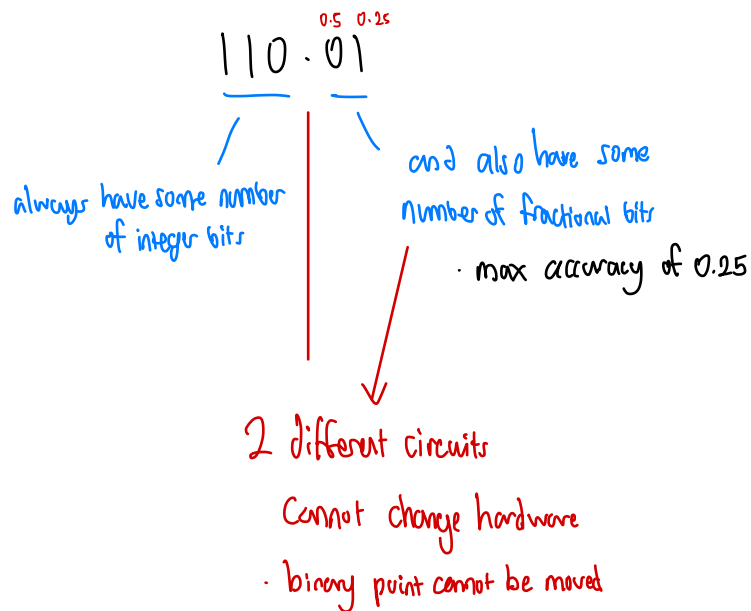 0.5 0.25
110.01
always have some number
of integer bits
and also have some
number of fractional bits
· max accuracy of 0.25
2 different circuits
Cannot change hardware
· binary point cannot be moved